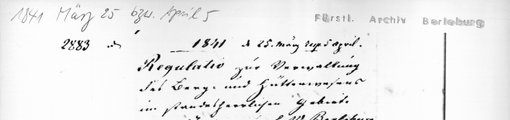 1841 März 25 bzw. April 5
Fürstl. Archiv Berleburg
2883 do 1841 d 25. März resp 5 April.
Regulativ zur Verwaltung
des Berg- und Hüttenwesens
im standesherrlichen Gebiete
W Berleburg